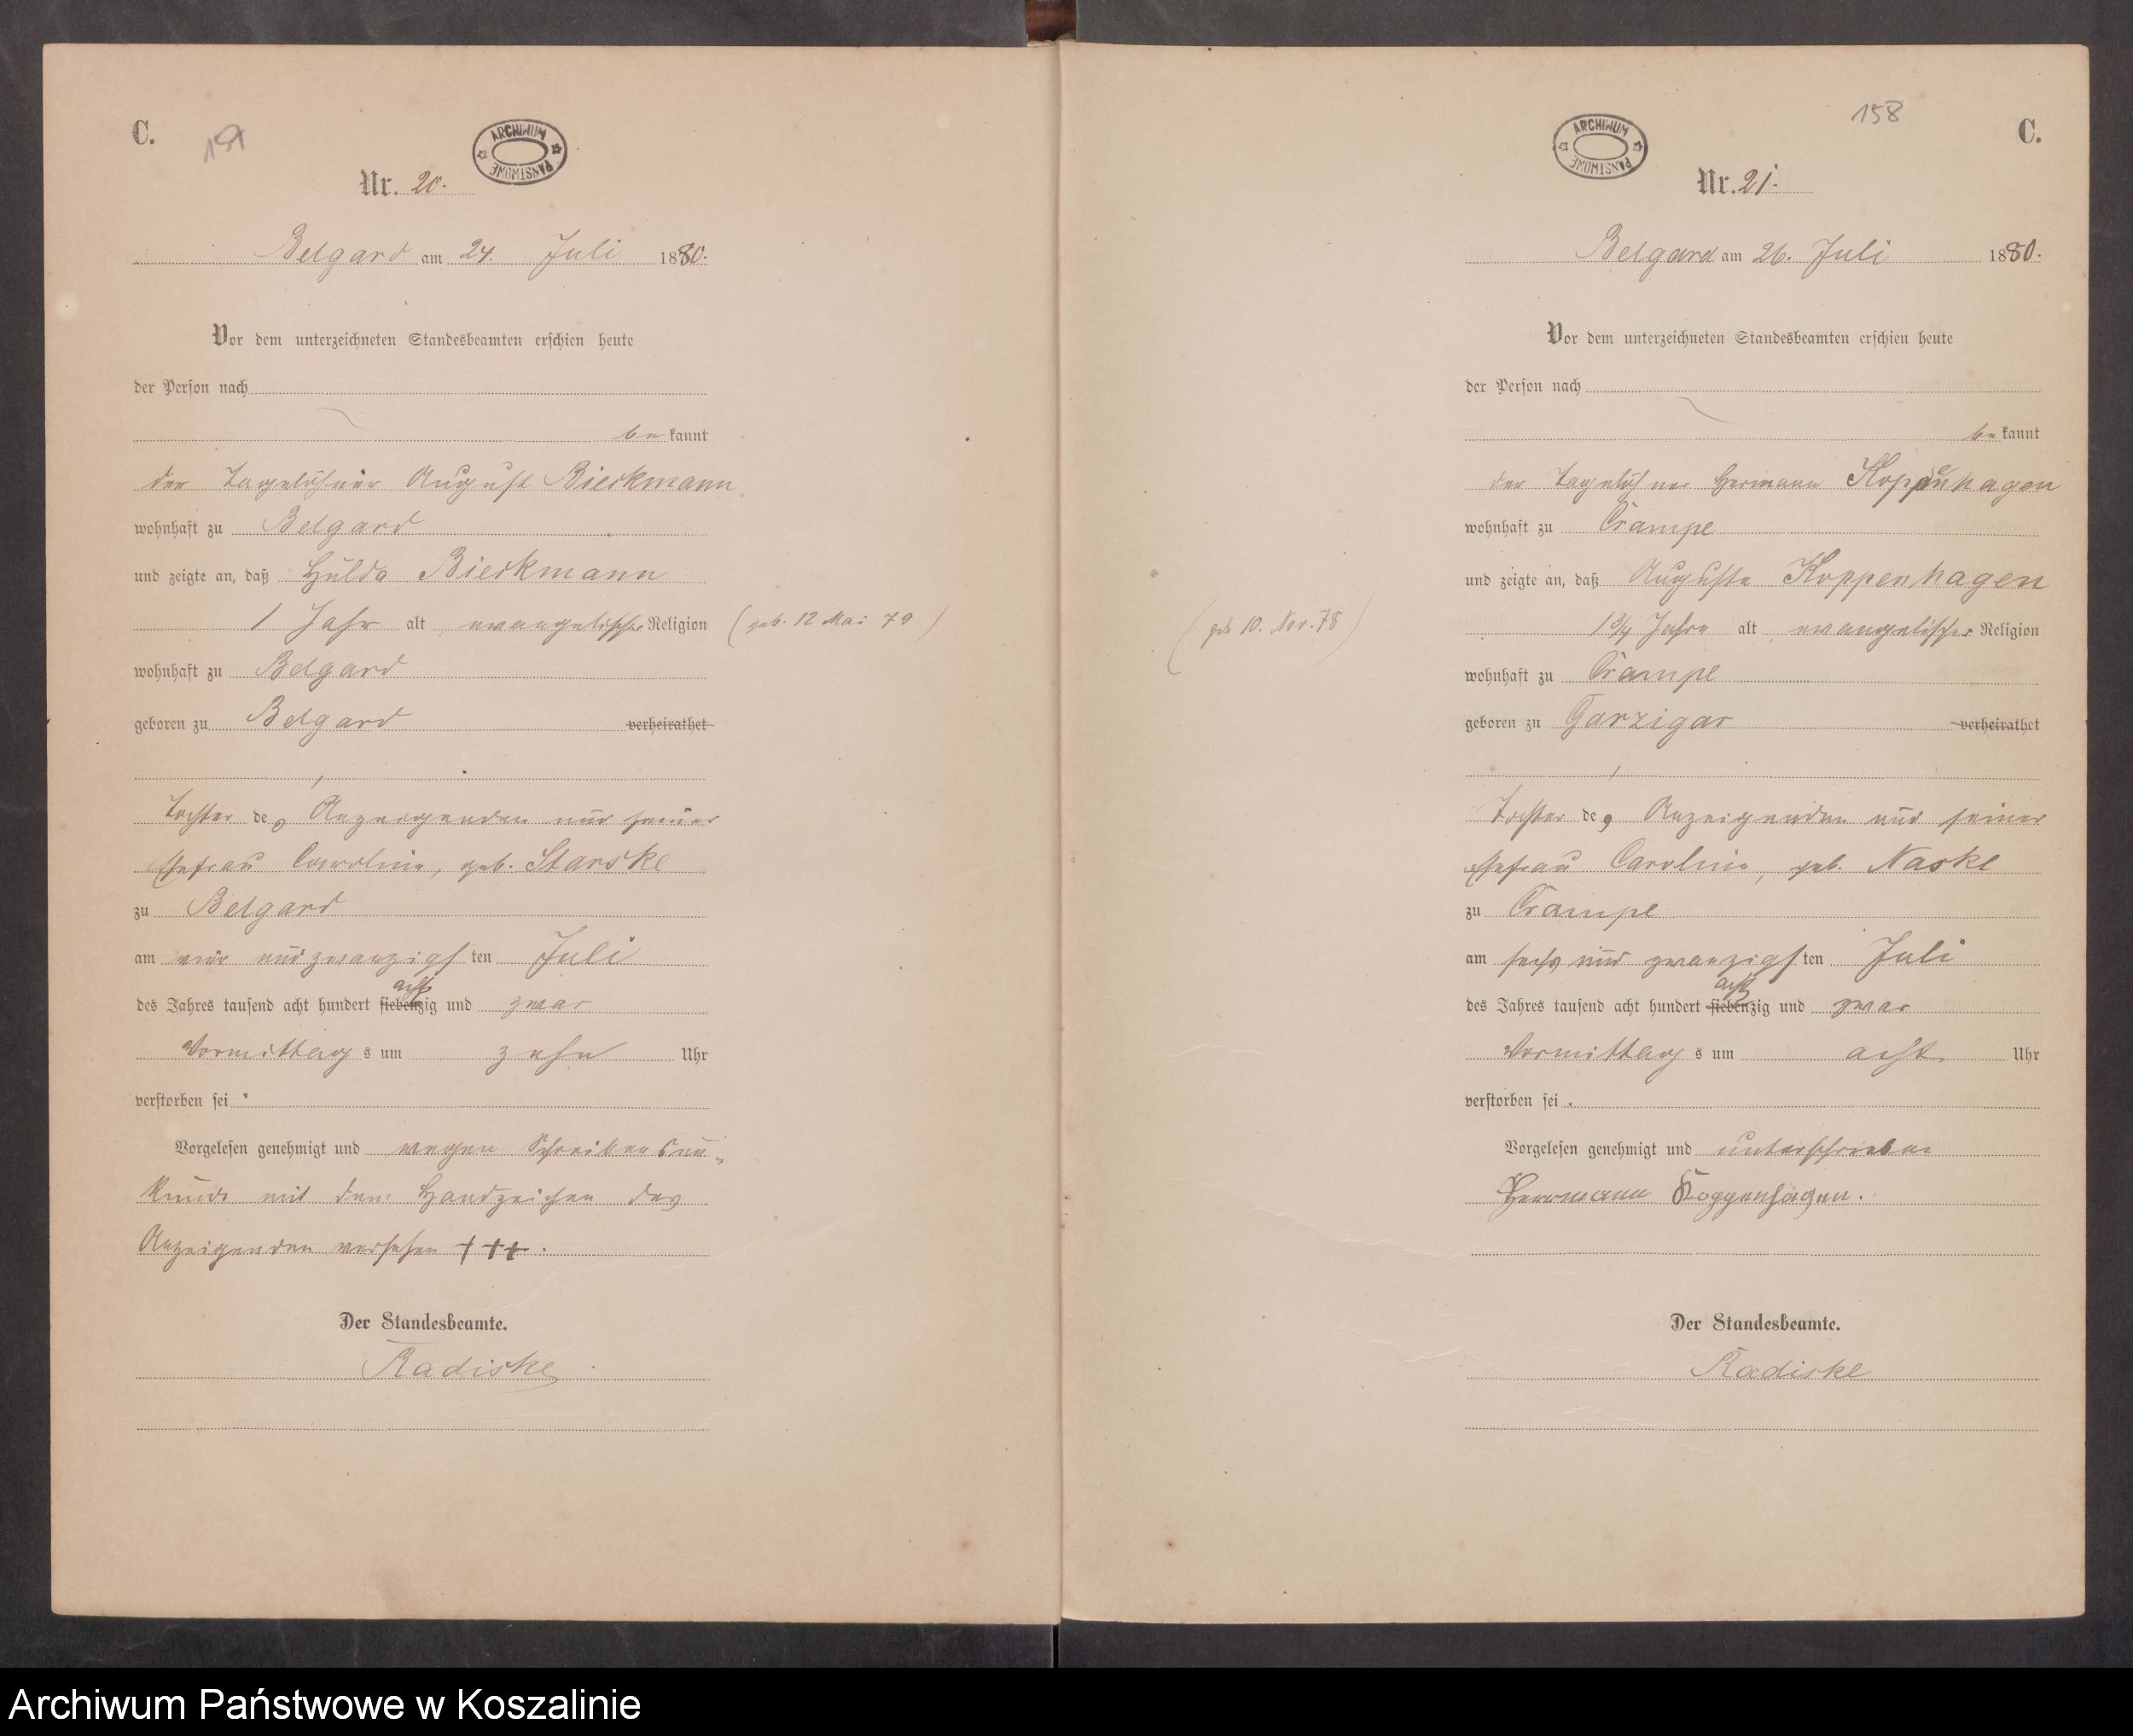 C.
157
ARCHIWUM PAŃSTWOWE
Nr. 20.
Belgard am 24. Juli 1880.
Vor dem unterzeichneten Standesbeamten erschien heute
der Person nach
be kannt
der Tagelöhner August Bieckmann
wohnhaft zu Belgard
und zeigte an, daß Hulda Bieckmann
1 Jahr alt evangelischer Religion (geb. 12 Mai 79)
wohnhaft zu Belgard
geboren zu Belgard verheirathet
Tochter des Anzeigenden und seiner
Ehefrau Caroline, geb. Starske
zu Belgard
am vier und zwanzigsten Juli
acht
des Jahres tausend acht hundert siebenzig und zwar
Vormittags um zehn Uhr
verstorben sei
Vorgelesen genehmigt und wegen Schreibensun-
kunde mit dem Handzeichen des
Anzeigenden versehen +++.
Der Standesbeamte.
Radiske
158
C.
ARCHIWUM PAŃSTWOWE
Nr. 21.
Belgard am 26. Juli 1880.
Vor dem unterzeichneten Standesbeamten erschien heute
der Person nach
be kannt
der Tagelöhner Hermann Koppenhagen
wohnhaft zu Crampe
und zeigte an, daß Auguste Koppenhagen
(geb 10. Nov. 78) 1 3/4 Jahre alt, evangelischer Religion
wohnhaft zu Crampe
geboren zu Garzigar verheirathet
Tochter des Anzeigenden und seiner
Ehefrau Caroline, geb. Naske
zu Crampe
am sechs und zwanzigsten Juli
acht
des Jahres tausend acht hundert siebenzig und zwar
Vormittags um acht Uhr
verstorben sei.
Vorgelesen genehmigt und unterschrieben
Herrmann Koppenhagen.
Der Standesbeamte.
Radiske
Archiwum Państwowe w Koszalinie